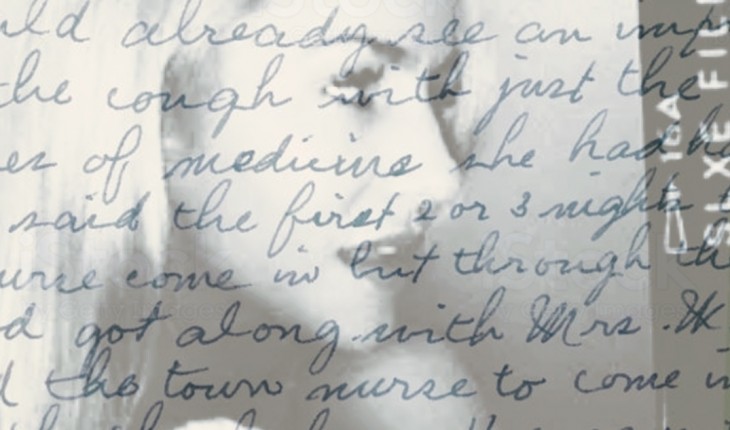 already see an
the cough with just the
of medicine she had
said the first 2 or 3 nights
come in but through
got along with Mrs. W
the town nurse to come in